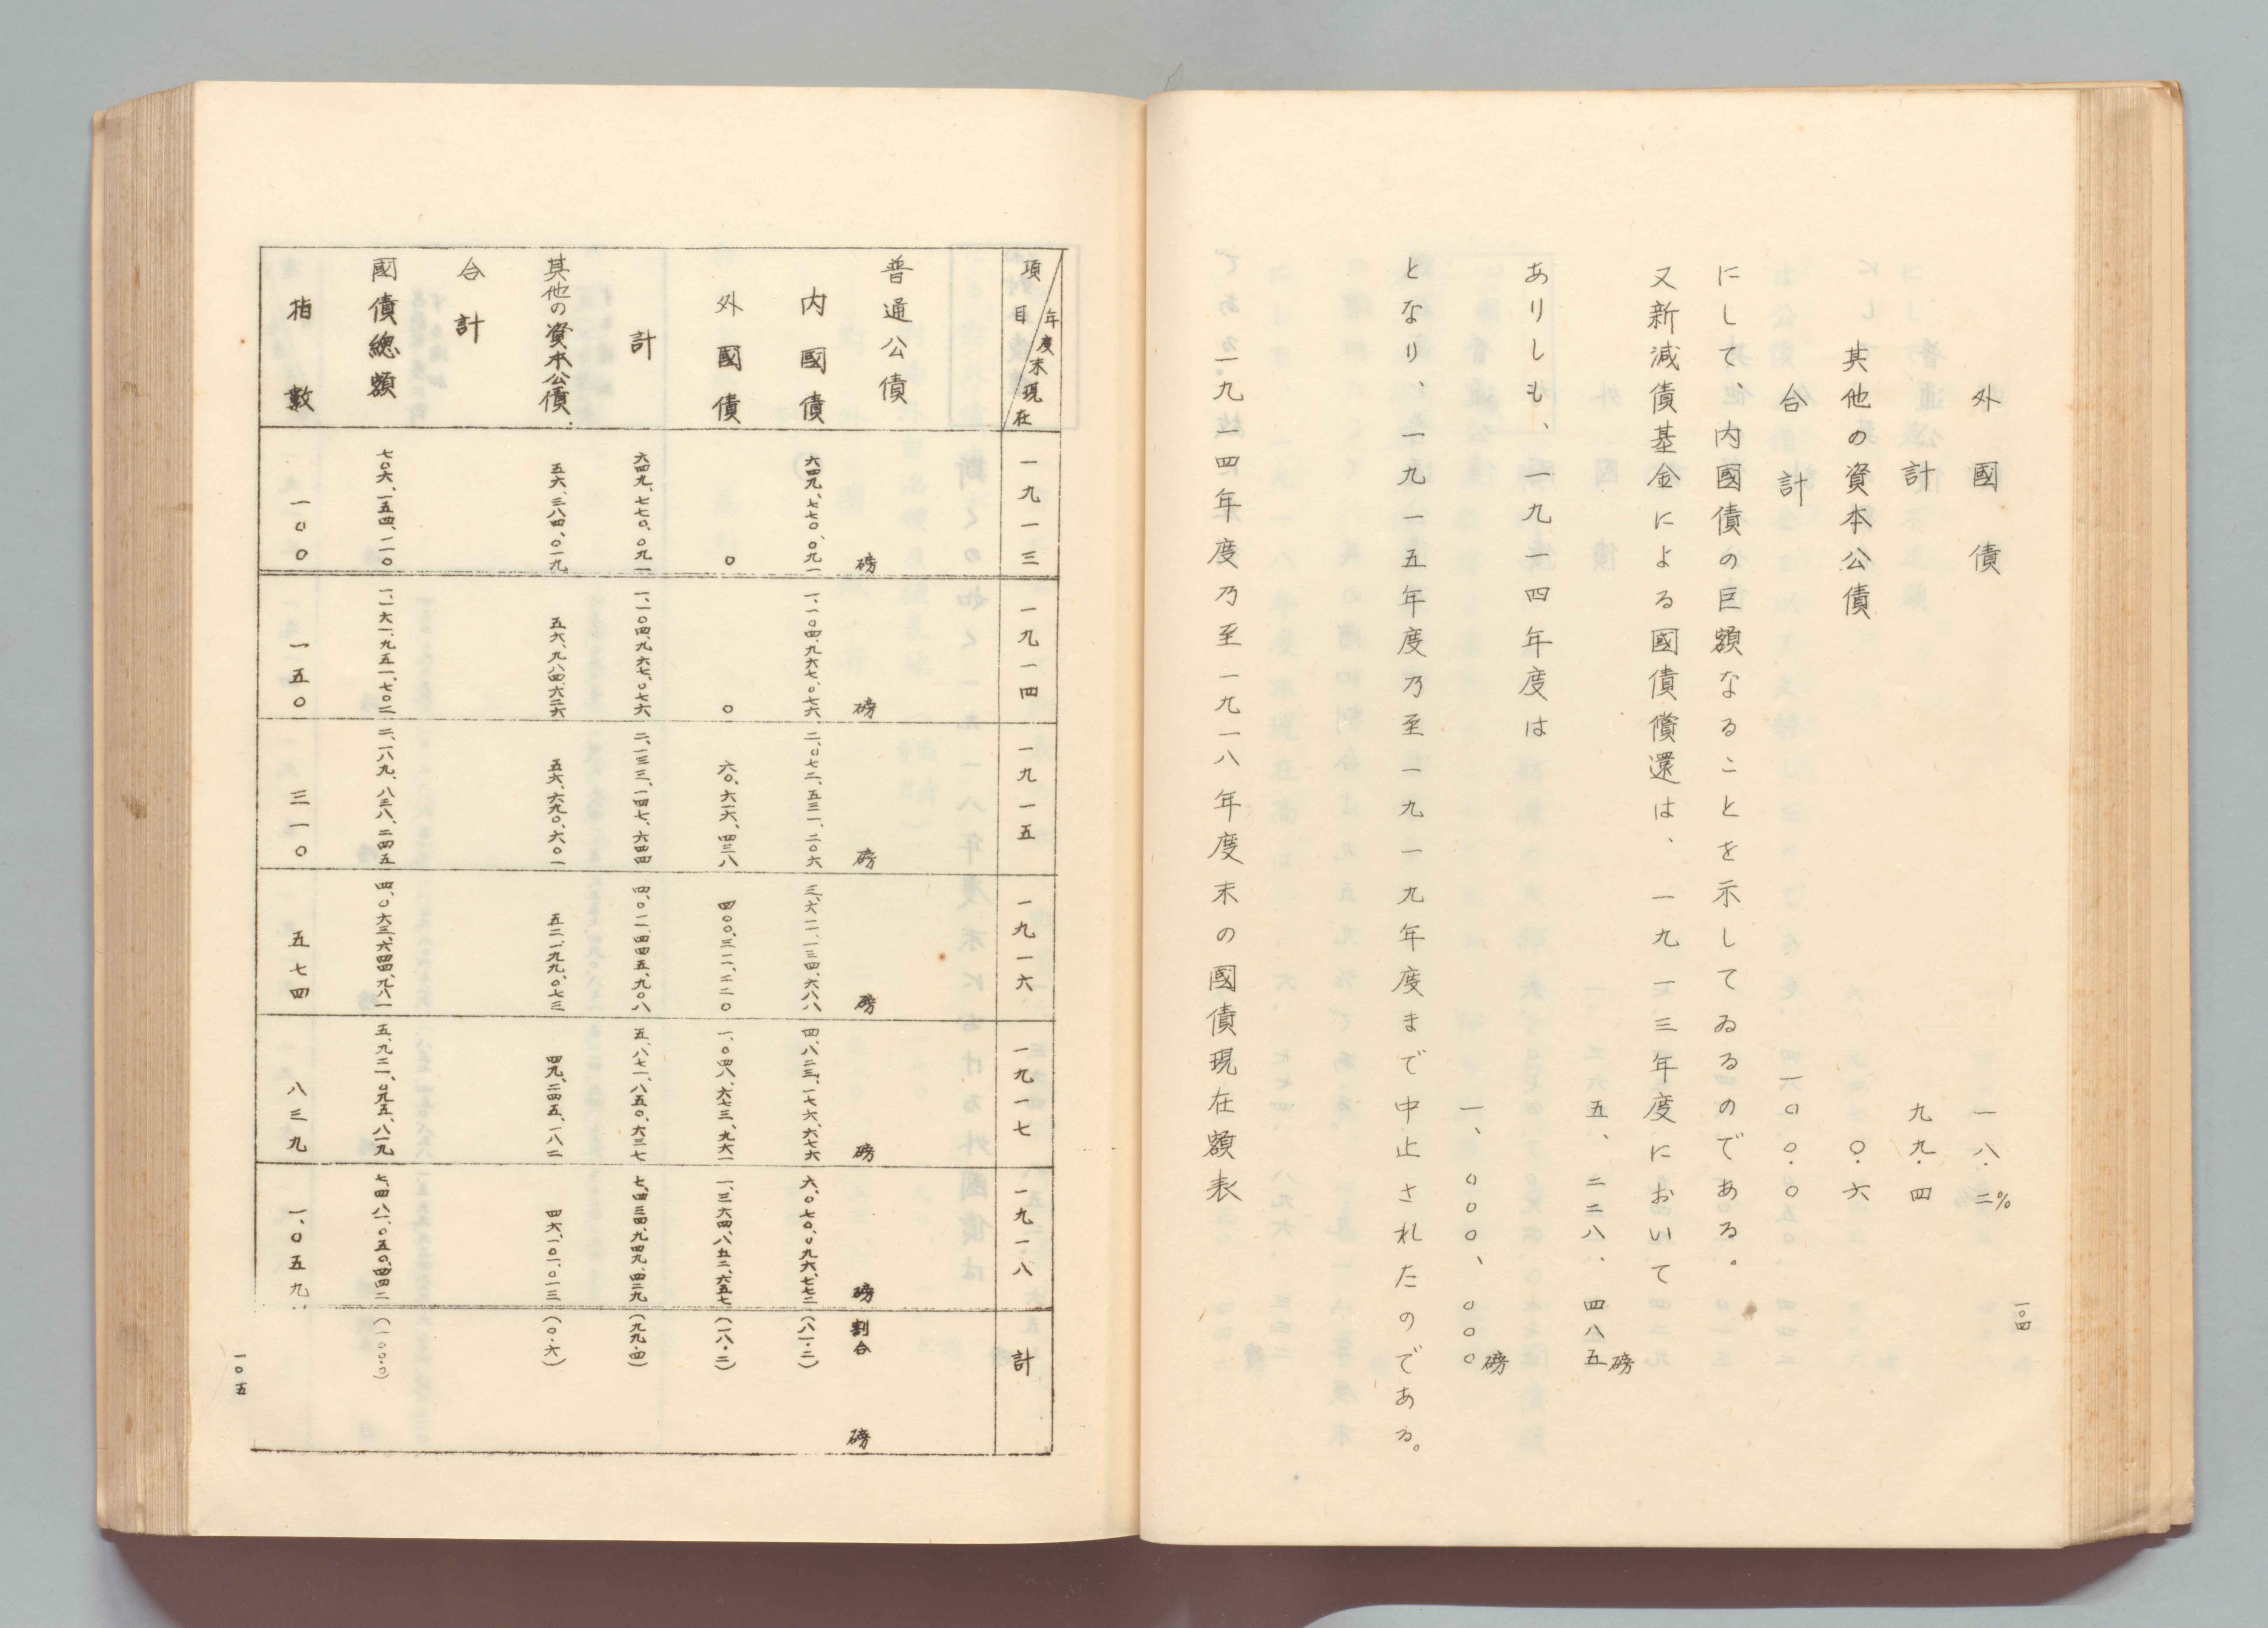 一〇四
外國債 一八・二%
計 九九・四
其他の資本公債 〇・六
合計 一〇〇・〇
にして、内國債の巨額なることを示してゐるのである。
又新減債基金による國債償還は、一九一三年度において
五、二二八、四八五磅
ありしも、一九一四年度は
一、〇〇〇、〇〇〇磅
となり、一九一五年度乃至一九一九年度まで中止されたのである。
一九一四年度乃至一九一八年度末の國債現在額表
項目 年度末現在 一九一三 一九一四 一九一五 一九一六 一九一七 一九一八 計
普通公債 磅 磅 磅 磅 磅 磅 割合 磅
内國債 六四九、七七〇、〇九一 一、一〇四、九六七、〇七六 二、〇七二、五三一、二〇六 三、六一一、一三四、六八八 四、八二三、一七六、六七六 六、〇七〇、〇九六、七七二 (八一・二)
外國債 〇 〇 六〇、六一六、四三八 四〇〇、三一一、二二〇 一、〇四八、六七三、九六一 一、三六四、八五二、六五七 (一八・二)
計 六四九、七七〇、〇九一 一、一〇四、九六七、〇七六 二、一三三、一四七、六四四 四、〇一一、四四五、九〇八 五、八七一、八五〇、六三七 七、四三四、九四九、四二九 (九九・四)
其他の資本公債 五六、三八四、〇一九 五六、九八四、六二六 五六、六九〇、六〇一 五二、一九九、〇七三 四九、二四五、一八二 四六、一〇一、〇一三 (〇・六)
合計
國債總額 七〇六、一五四、一一〇 一、一六一、九五一、七〇二 二、一八九、八三八、二四五 四、〇六三、六四四、九八一 五、九二一、〇九五、八一九 七、四八一、〇五〇、四四二 (一〇〇・〇)
指數 一〇〇 一五〇 三一〇 五七四 八三九 一、〇五九
一〇五